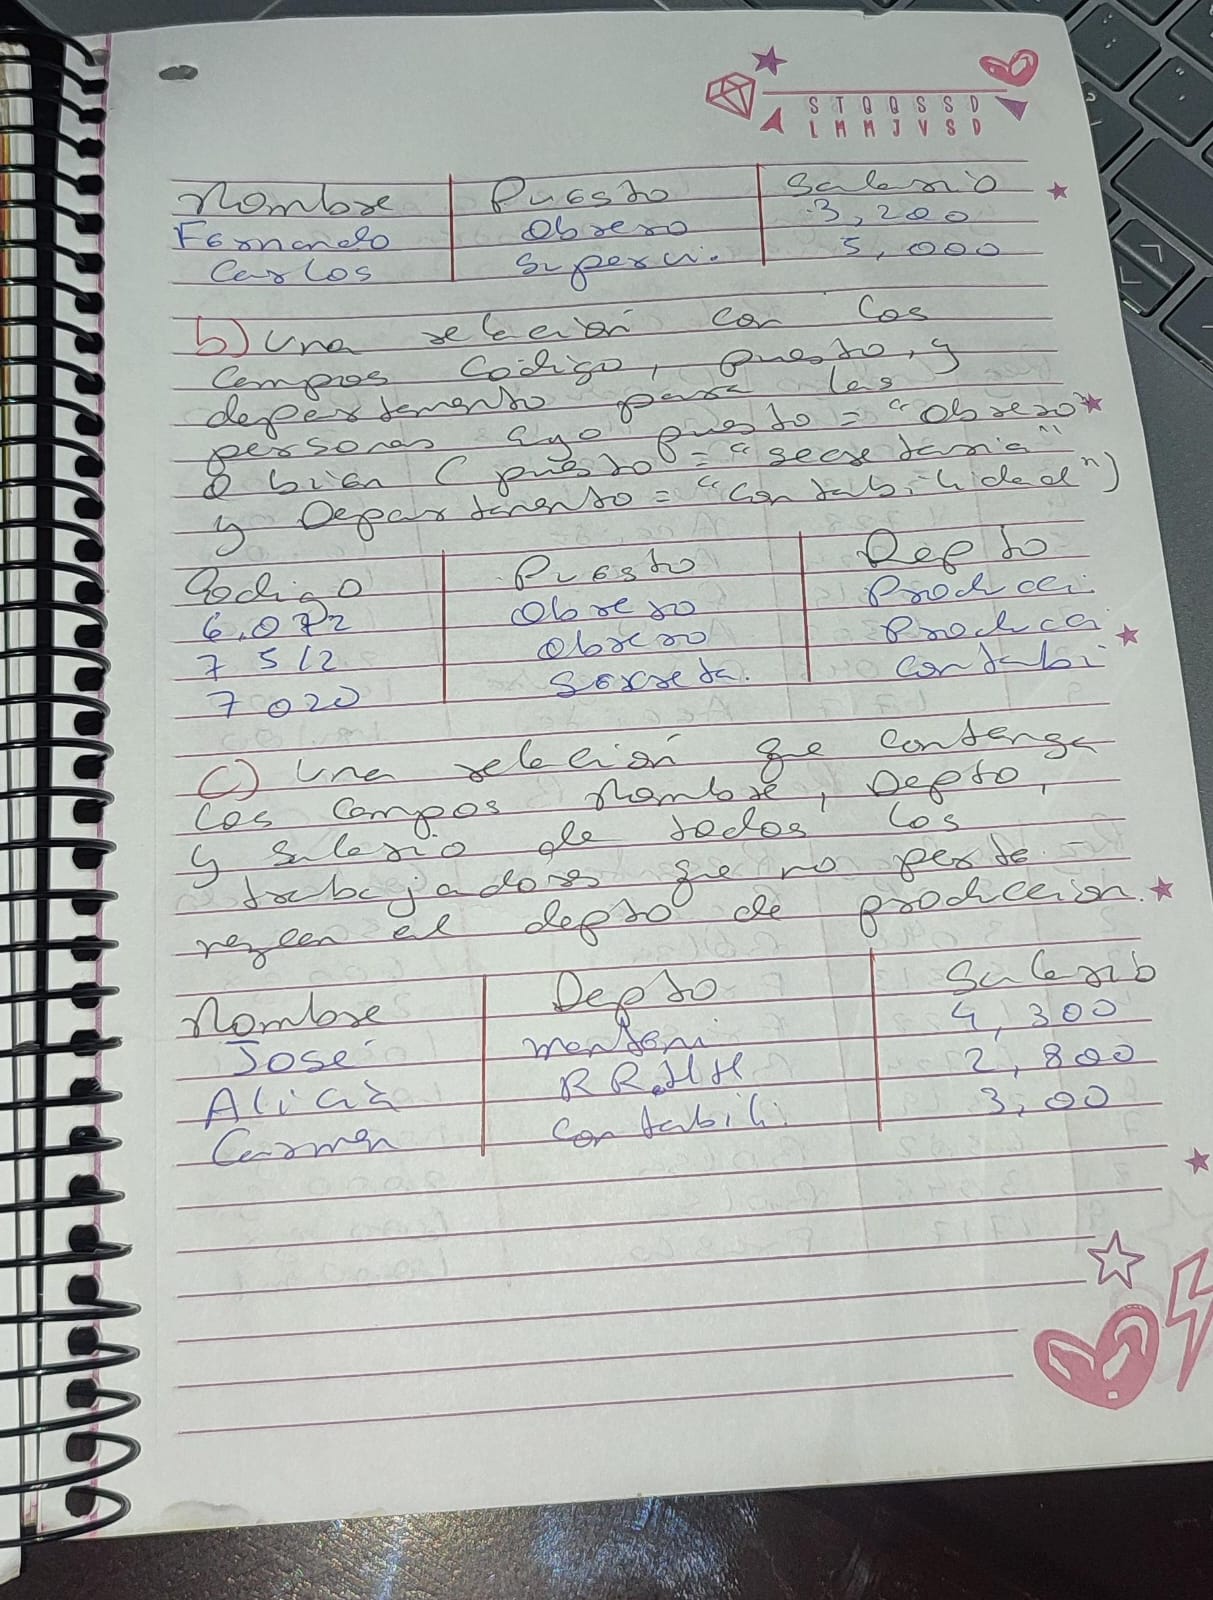 S T Q Q S S D
L M M J V S D
Nombre Puesto Salario
Fernando Obrero 3,200
Carlos Supervi. 5,000
b) Una relación con los
campos Código, puesto, y
departamento para las
personas cuyo puesto = "Obrero"
O bien (puesto = "secretaria"
y Departamento = "Contabilidad")
Codigo Puesto Depto
6,072 Obrero Producci.
7 512 Obrero Producci
7 020 Secreta. Contabi
c) Una relación que contenga
los campos Nombre, Depto,
y Salario de todos los
trabajadores que no perte -
nezcan al depto de produccion.
Nombre Depto Salario
José manteni 4,300
Alicia RR.HH 2,800
Carmen Contabili. 3,00